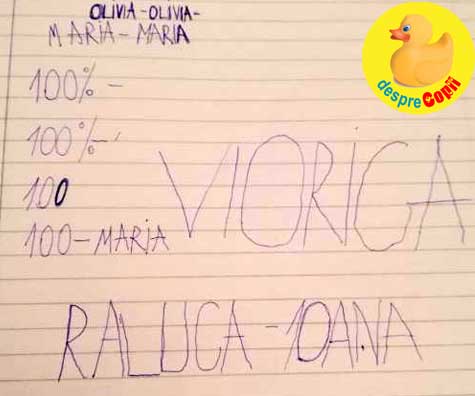 OLIVIA-OLIVIA-
MARIA-MARIA
despre Copii
100% -
100% -
100
100-MARIA
VIORICA
RALUCA-IOANA